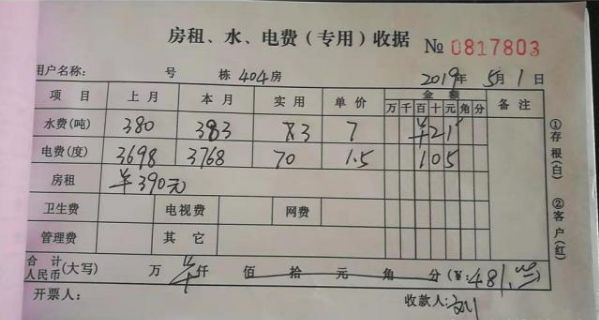 房租、水、电费(专用)收据 № 0817803
用户名称: 号 栋 404 房 2019年 5月 1日
项目 上月 本月 实用 单价 金额 备注
万 千 百 十 元 角 分
水费(吨) 380 383 3 7 ¥21
电费(度) 3698 3768 70 1.5 105
房租 ¥390元
卫生费 电视费 网费
管理费 其它
合计人民币(大写) 万 仟 佰 拾 元 角 分 (¥:481.00)
开票人: 收款人:
①存根(白) ②客户(红)